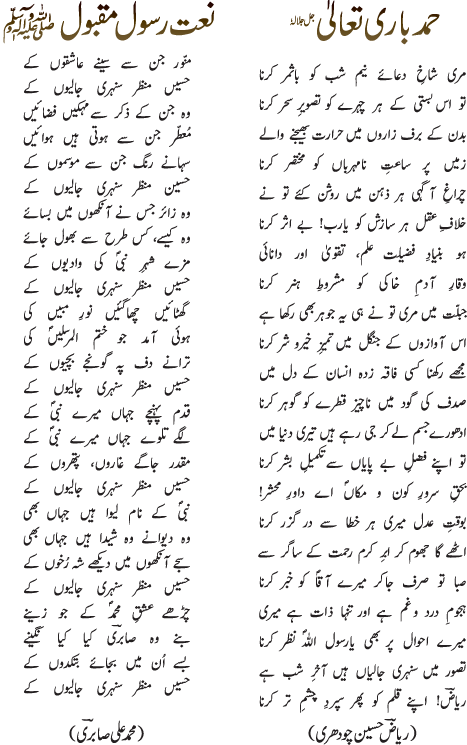 حمد باری تعالیٰ جل جلالہٗ
مری شاخِ دعائے نیم شب کو باثمر کرنا
تو اس بستی کے ہر چہرے کو تصویرِ سحر کرنا
بدن کے برف زاروں میں حرارت بھیجنے والے
زمیں پر ساعتِ نامہرباں کو مختصر کرنا
چراغِ آگہی ہر ذہن میں روشن کئے تو نے
خلافِ عقل ہر سازش کو یارب! بے اثر کرنا
ہو بنیادِ فضیلت علم، تقویٰ اور دانائی
وقارِ آدمِ خاکی کو مشروطِ ہنر کرنا
جبلّت میں مری تو نے ہی یہ جوہر بھی رکھا ہے
اس آوازوں کے جنگل میں تمیزِ خیرو شر کرنا
مجھے رکھنا کسی فاقہ زدہ انسان کے دل میں
صدف کی گود میں ناچیز قطرے کو گوہر کرنا
ادھورے جسم لے کر جی رہے ہیں تیری دنیا میں
تو اپنے فضلِ بے پایاں سے تکمیلِ بشر کرنا
بحقِ سرورِ کون و مکاں اے داورِ محشر!
بوقتِ عدل میری ہر خطا سے در گزر کرنا
اٹھے گا جھوم کر ابرِ کرم رحمت کے ساگر سے
صبا تو صرف جاکر میرے آقاؐ کو خبر کرنا
ہجومِ درد و غم ہے اور تنہا ذات ہے میری
میرے احوال پر بھی یارسول اللہؐ نظر کرنا
تصور میں سنہری جالیاں ہیں آخرِ شب ہے
ریاضؔ! اپنے قلم کو پھر سپردِ چشمِ تر کرنا
(ریاضؔ حسین چودھری)
نعت رسول مقبول ﷺ
منوّر جن سے سینے عاشقوں کے
حسیں منظر سنہری جالیوں کے
وہ جن کے ذکر سے مہکیں فضائیں
معطّر جن سے ہوتی ہیں ہوائیں
سہانے رنگ جن سے موسموں کے
حسین منظر سنہری جالیوں کے
وہ زائر جس نے آنکھوں میں بسائے
وہ کیسے، کس طرح سے بھول جائے
مزے شہرِ نبیؐ کی وادیوں کے
حسیں منظر سنہری جالیوں کے
گھٹائیں چھاگئیں نورِ مبیں کی
ہوئی آمد جو ختم المرسلیںؐ کی
ترانے دف پہ گونجے بچیوں کے
حسیں منظر سنہری جالیوں کے
قدم پہنچے جہاں میرے نبیؐ کے
لگے تلوے جہاں میرے نبیؐ کے
مقدر جاگے غاروں، پتھروں کے
حسیں منظر سنہری جالیوں کے
نبیؐ کے نام لیوا ہیں جہاں بھی
وہ دیوانے وہ شیدا ہیں جہاں بھی
سجے آنکھوں میں دیکھے شہ رُخوں کے
حسیں منظر سنہری جالیوں کے
چڑھے عشقِ محمدؐ کے جو زینے
بنے وہ صابریؔ کیا کیا نگینے
بسے اُن میں بجائے بتکدوں کے
حسیں منظر سنہری جالیوں کے
(محمد علی صابریؔ)